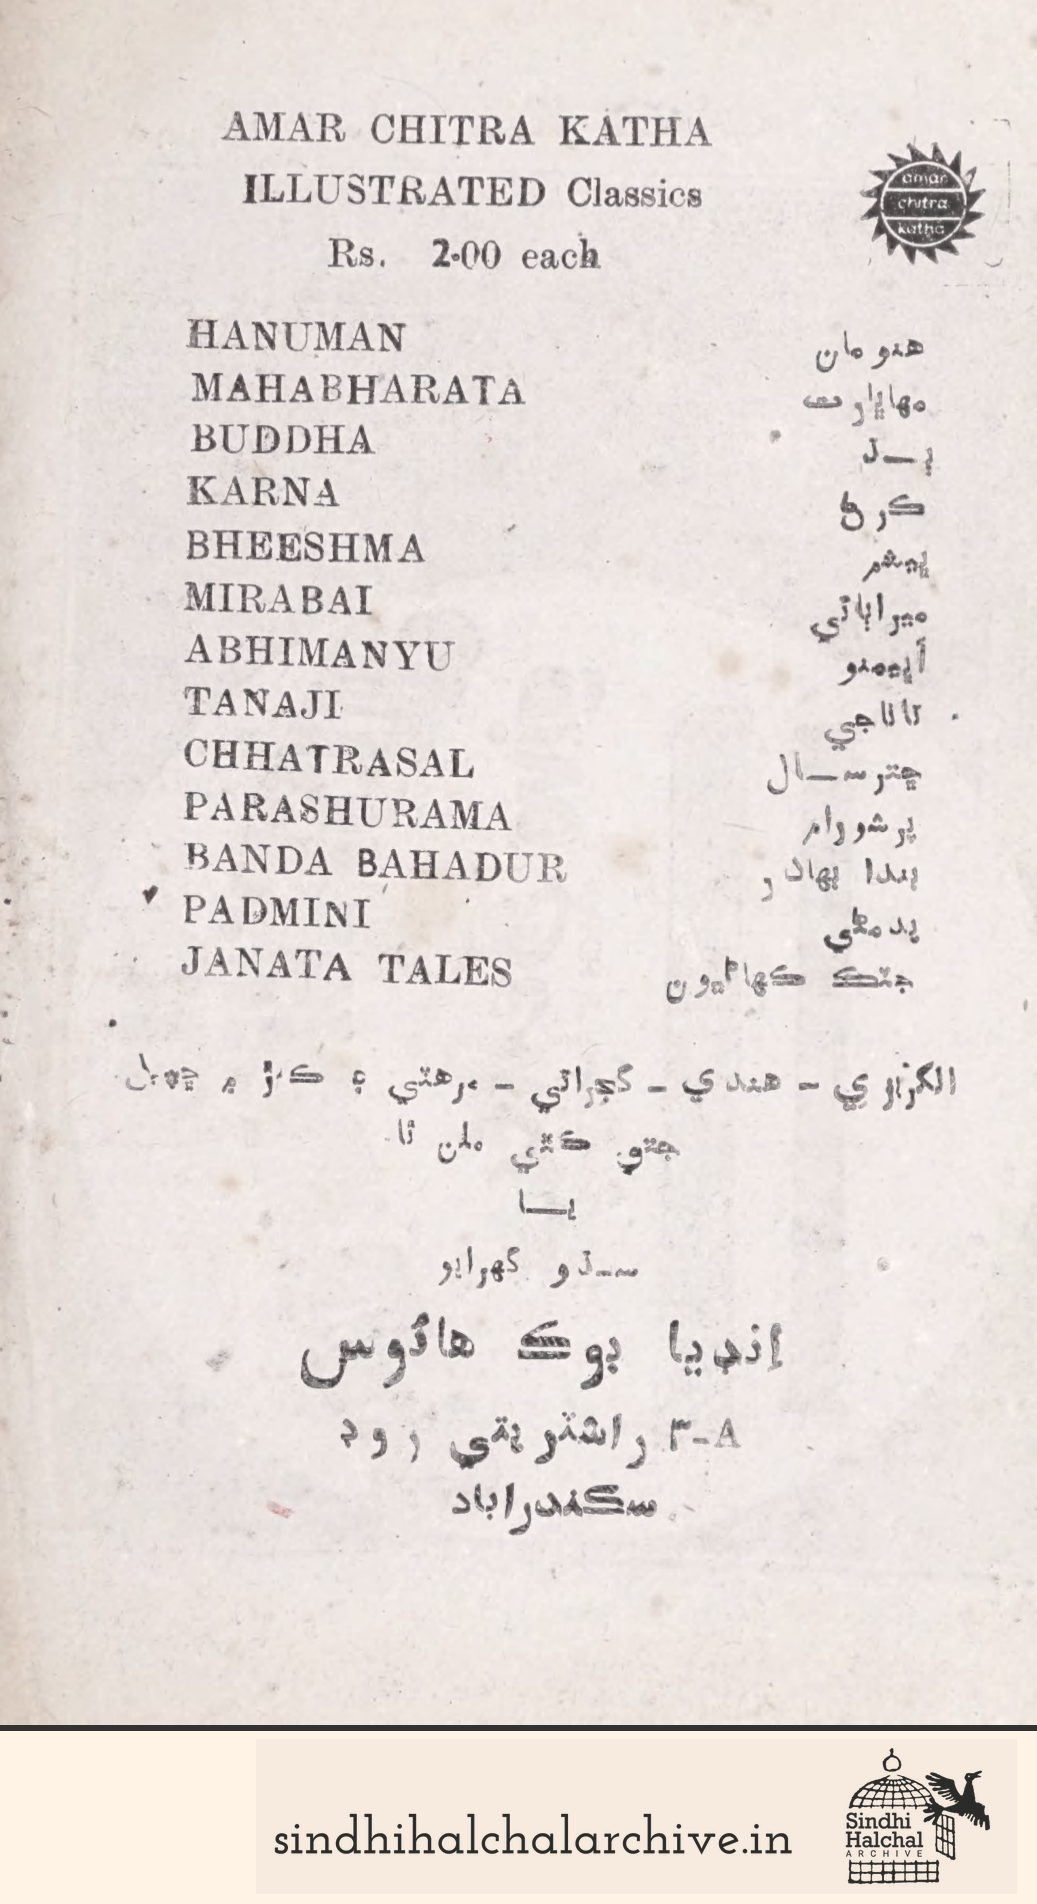 AMAR CHITRA KATHA
ILLUSTRATED Classics
Rs. 2·00 each
amar
chitra
katha
HANUMAN هنومان
MAHABHARATA مهاڀارت
BUDDHA ٻــڌ
KARNA ڪرڻ
BHEESHMA ڀيشم
MIRABAI ميراٻائي
ABHIMANYU اڀيمنو
TANAJI تاناجي
CHHATRASAL ڇترســال
PARASHURAMA پرشورام
BANDA BAHADUR ٻندا بهادر
PADMINI پدمڻي
JANATA TALES جتڪ ڪهاڻيون
انگريزي - هندي - گجراتي - مرهٽي ۽ ڪنڙ ۾ ڇپيل
جتي ڪٿي ملن ٿا
يــا
ســڌو گهرايو
انڊيا بوڪ هائوس
٣-A راشٽرپتي روڊ
سڪندراباد
sindhihalchalarchive.in
Sindhi
Halchal
ARCHIVE